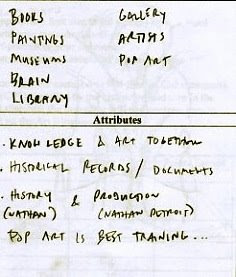 BOOKS GALLERY
PAINTINGS ARTISTS
MUSEUMS POP ART
BRAIN
LIBRARY
Attributes
· KNOWLEDGE & ART TOGETHER
· HISTORICAL RECORDS / DOCUMENTS
· HISTORY & PRODUCTION
(NATHAN) (NATHAN DETROIT)
POP ART IS BEST TRAINING...